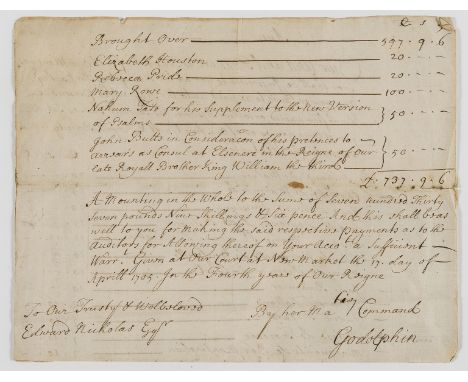 £ s d
Brought Over 597 . 9 . 6
Elizabeth Houston 20 . - . -
Rebecca Pride 20 . - . -
Mary Rowe 100 . - . -
Nahum Tate for his Supplement to the New Version
of Psalms } 50 . - . -
John Butts in Consideracon of his pretences to
arrears as Consul at Elsenere in the Reigne of Our
late Royall Brother King William the third } 50 . - . -
£. 737 . 9 . 6
Amounting in the Whole to the Sume of Seven hundred Thirty
Seven pounds Nine Shillings & Six pence And this shall be as
well to you for making the said respective Payments as to the
Auditors for Allowing thereof on Your Acco.t a Sufficient
Warr.t Given at Our Court at New Market the 17. day of
Aprill 1705. In the Fourth yeare of Our Reigne
To Our Trusty & Welbeloved
Edward Nicholas Esq.r
By her Ma.ties Command
Godolphin